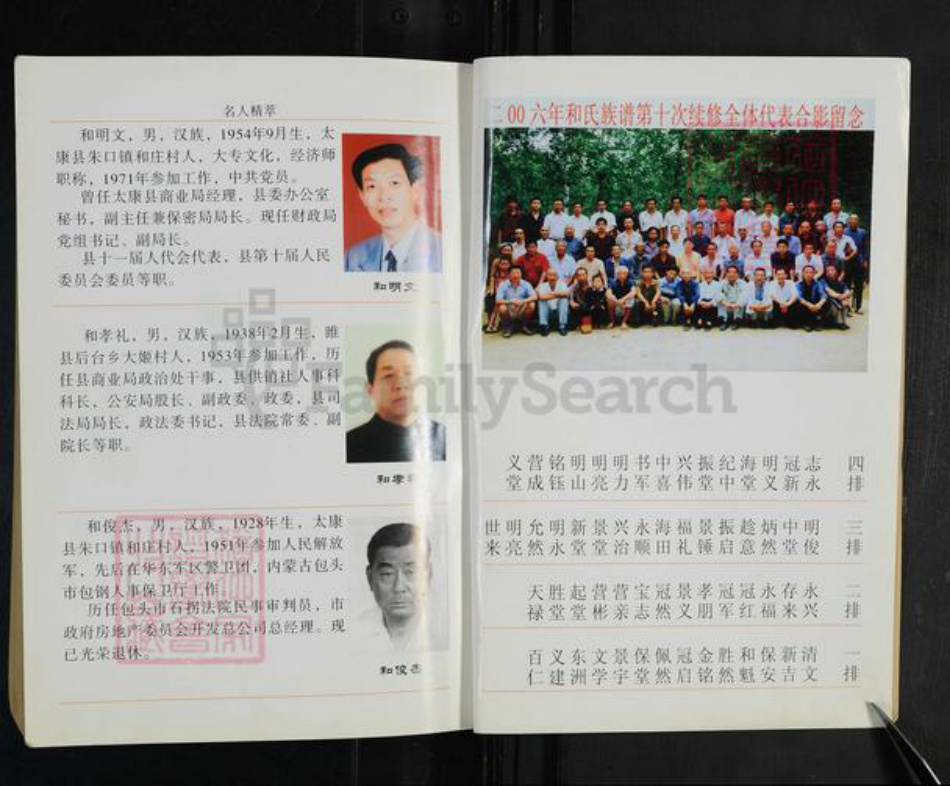 名人精萃
和明文，男，汉族，1954年9月生，太
康县朱口镇和庄村人，大专文化，经济师
职称，1971年参加工作，中共党员。
曾任太康县商业局经理，县委办公室
秘书，副主任兼保密局局长。现任财政局
党组书记、副局长。
县十一届人代会代表，县第十届人民
委员会委员等职。
和明文
和孝礼，男，汉族，1938年2月生，睢
县后台乡大姬村人，1953年参加工作，历
任县商业局政治处干事，县供销社人事科
科长，公安局股长、副政委，政委，县司
法局局长，政法委书记，县法院常委、副
院长等职。
和孝
和俊杰，男，汉族，1928年生，太康
县朱口镇和庄村人，1951年参加人民解放
军，先后在华东军区警卫团，内蒙古包头
市包钢人事保卫厅工作。
历任包头市石拐法院民事审判员，市
政府房地产委员会开发总公司总经理。现
已光荣退休。
和俊杰
二00六年和氏族谱第十次续修全体代表合影留念
FamilySearch
义营铭明明明书中兴振纪海明冠志 四
堂成钰山亮力军喜伟堂中堂义新永 排
世明允明新景兴永海福景振趁炳中明 三
来亮然永堂堂治顺田礼锤启意然堂俊 排
天胜起营营宝冠景孝冠冠永存永 二
禄堂堂彬亲志然义朋军红福来兴 排
百义东文景保佩冠金胜和保新清 一
仁建洲学宇堂然启铭然魁安吉文 排